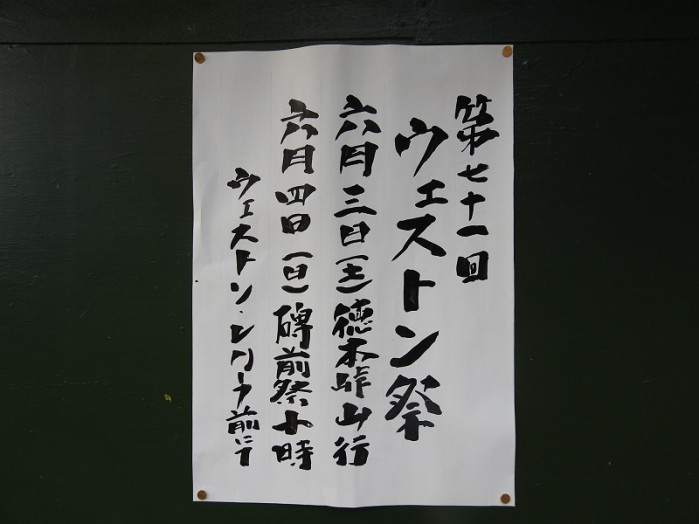 第七十一回
ウェストン祭
六月三日(土)徳本峠山行
六月四日(日)碑前祭十時
ウェストン・レリーフ前にて